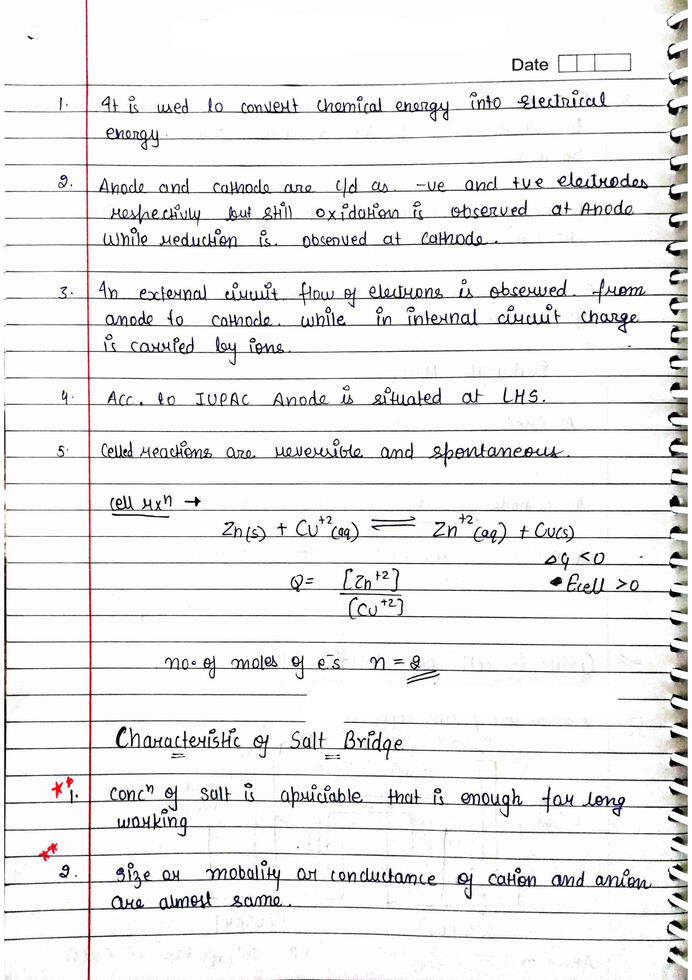 Date
1. It is used to convert chemical energy into electrical
energy.
2. Anode and cathode are c/d as -ve and +ve electrodes
respectivly but still oxidation is observed at Anode
while reduction is observed at cathode.
3. In external circuit flow of electrons is observed from
anode to cathode. while in internal circuit charge
is carried by ions.
4. Acc. to IUPAC Anode is situated at LHS.
5. Celled reactions are reversible and spontaneous.
cell rxⁿ →
Zn(s) + Cu⁺²(aq) ⇌ Zn⁺²(aq) + Cu(s)
ΔG <0
Q= [Zn⁺²]
[Cu⁺²]
• Ecell >0
no. of moles of e⁻s n = 2
Characteristic of Salt Bridge
1. concⁿ of salt is apriciable that is enough for long
working
2. Size or mobality or conductance of cation and anion
are almost same.